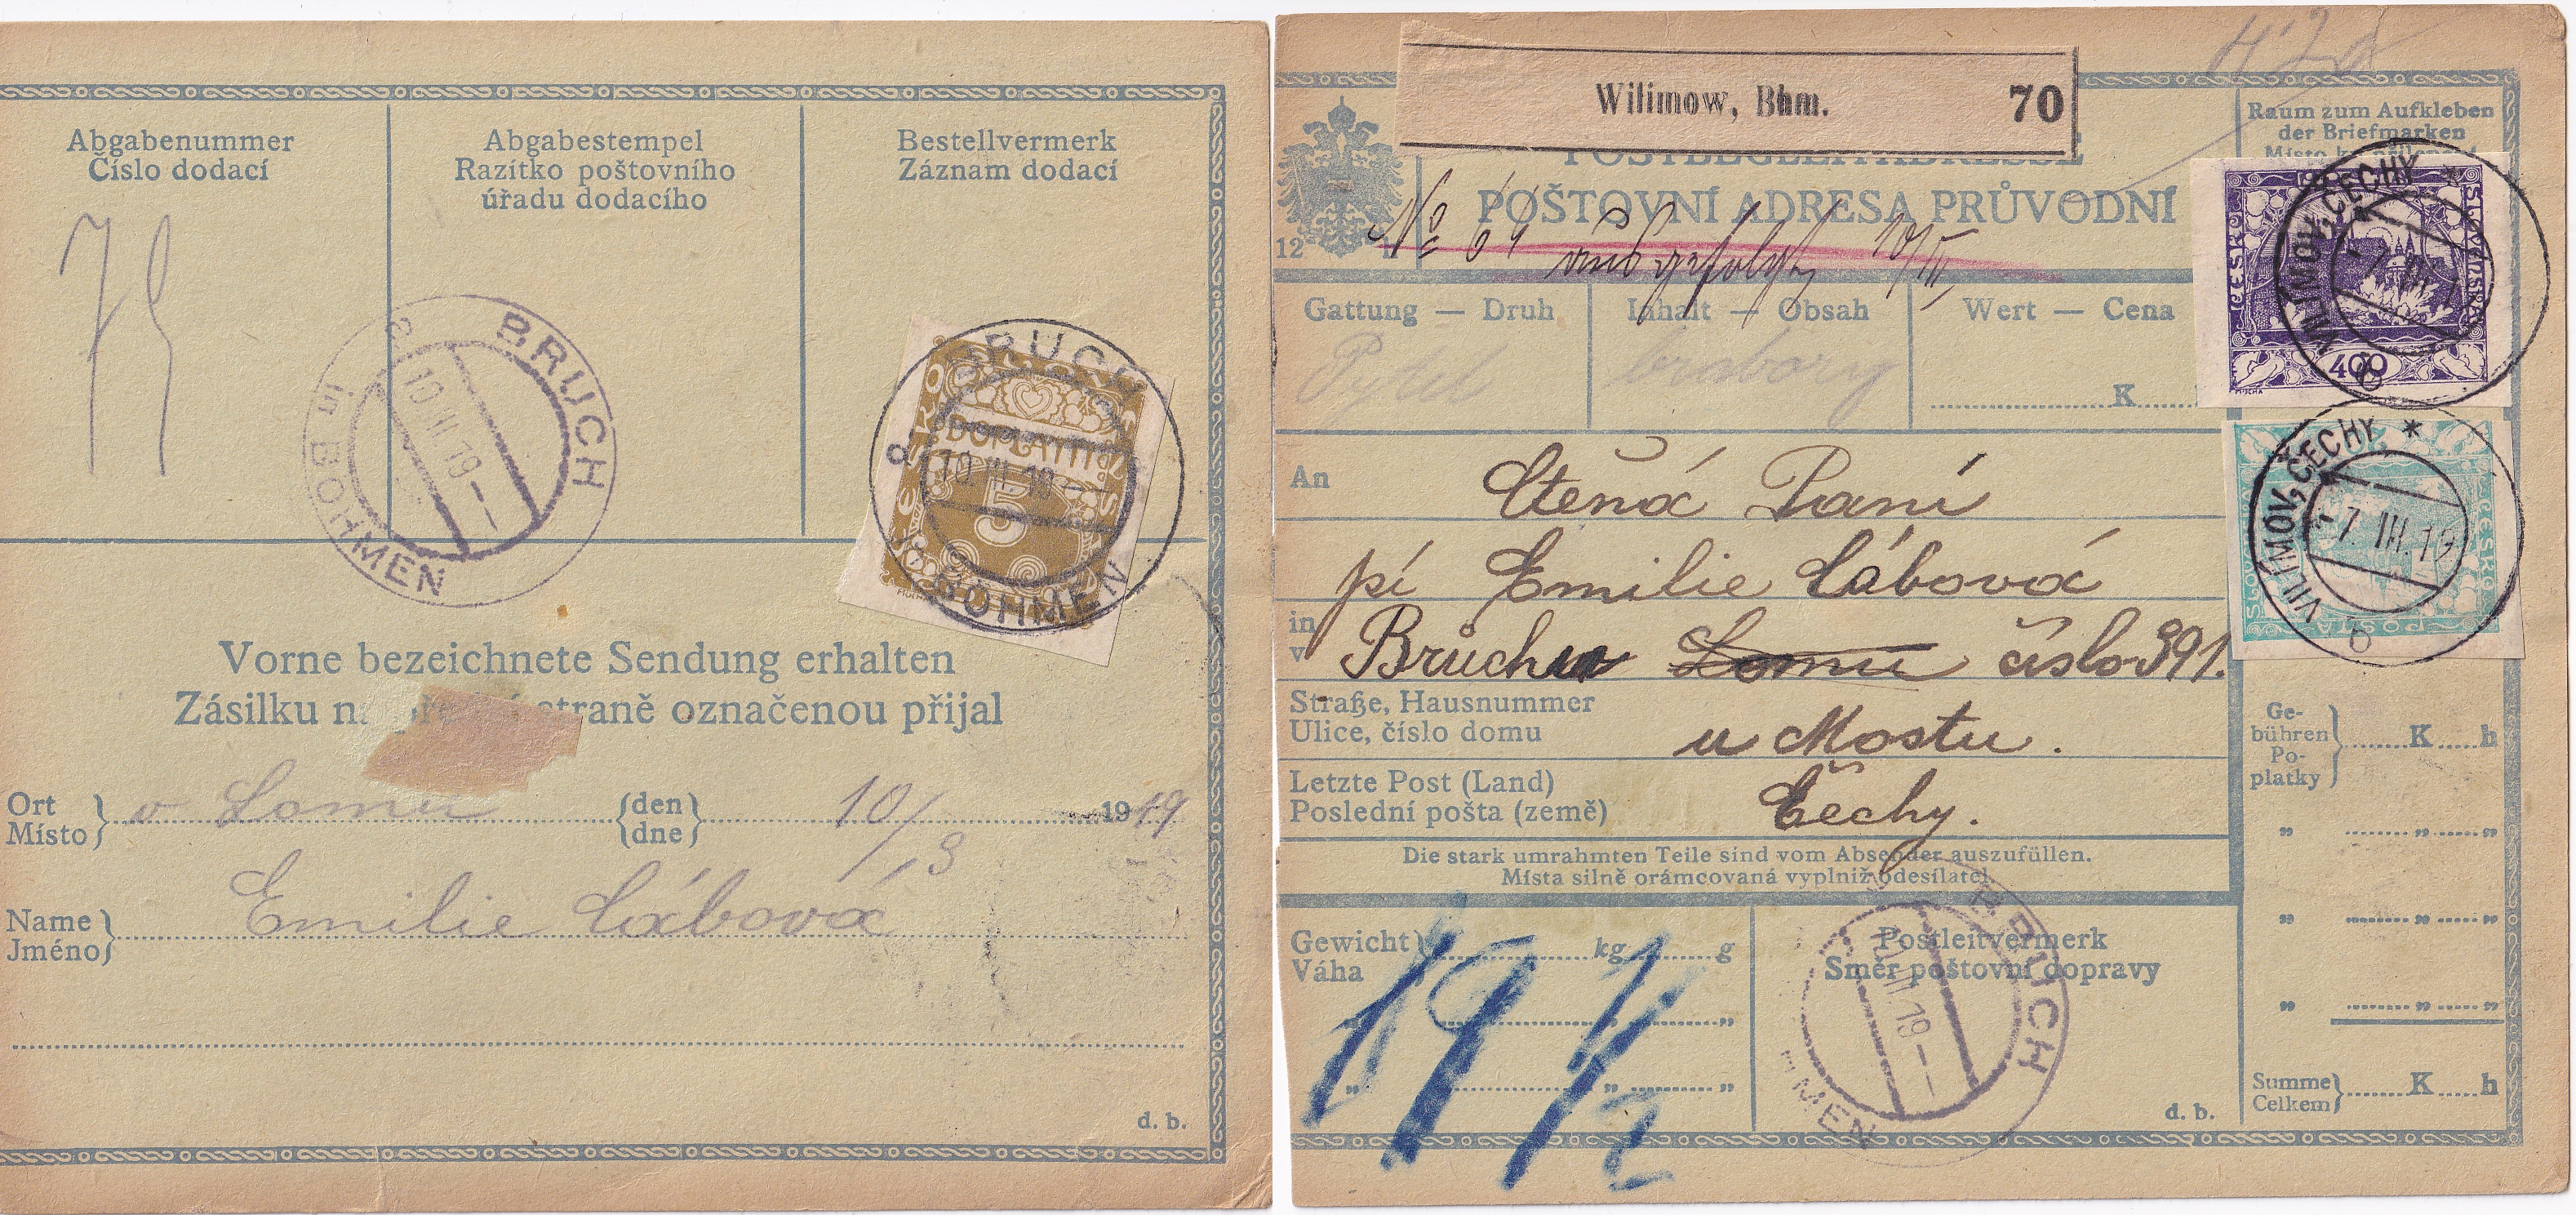 Abgabenummer
Číslo dodací
Abgabestempel
Razítko poštovního
úřadu dodacího
Bestellvermerk
Záznam dodací
BRUCH
in BÖHMEN
10 III 19
BRUCH
BÖHMEN
DOPLATIT
5
Vorne bezeichnete Sendung erhalten
Zásilku straně označenou přijal
Ort
Místo
v Lomu
den
dne
10/3
1919
Name
Jméno
Emilie Cábová
d. b.
Wilimow, Bhm. 70
POŠTOVNÍ ADRESA PRŮVODNÍ
12
No 64
ausgefolgt 10/III
Raum zum Aufkleben
der Briefmarken
Gattung — Druh
Inhalt — Obsah
Wert — Cena
Pytel
K
VILÍMOV, ČECHY *
400
MUCHA
An
Ctená Paní
pí Emilie Cábová
in
v
Bruchu Lomu číslo 391.
Straße, Hausnummer
Ulice, číslo domu
u Mostu.
Letzte Post (Land)
Poslední pošta (země)
Čechy.
VILÍMOV, ČECHY *
7. III. 19
b
ČESKO
POŠTA
Die stark umrahmten Teile sind vom Absender auszufüllen.
Místa silně orámcovaná vyplniž odesílatel
Ge-
bühren
Po-
platky
K h
Gewicht
Váha
kg g
19 1/2
Postleitvermerk
Směr poštovní dopravy
BRUCH
MEN
III 19
Summe
Celkem
K h
d. b.